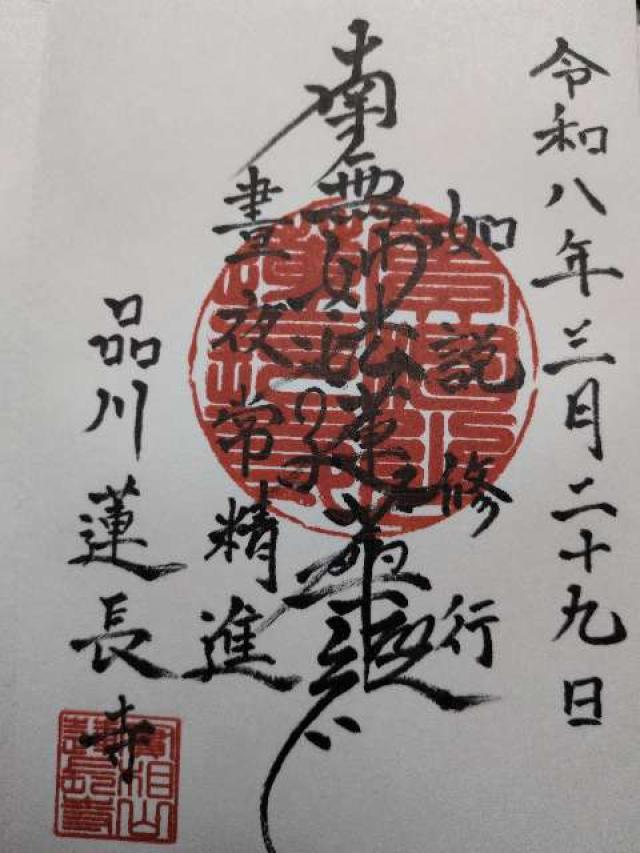 令和八年三月二十九日
如説修行
南無妙法蓮華経
晝夜常精進
品川
蓮長寺